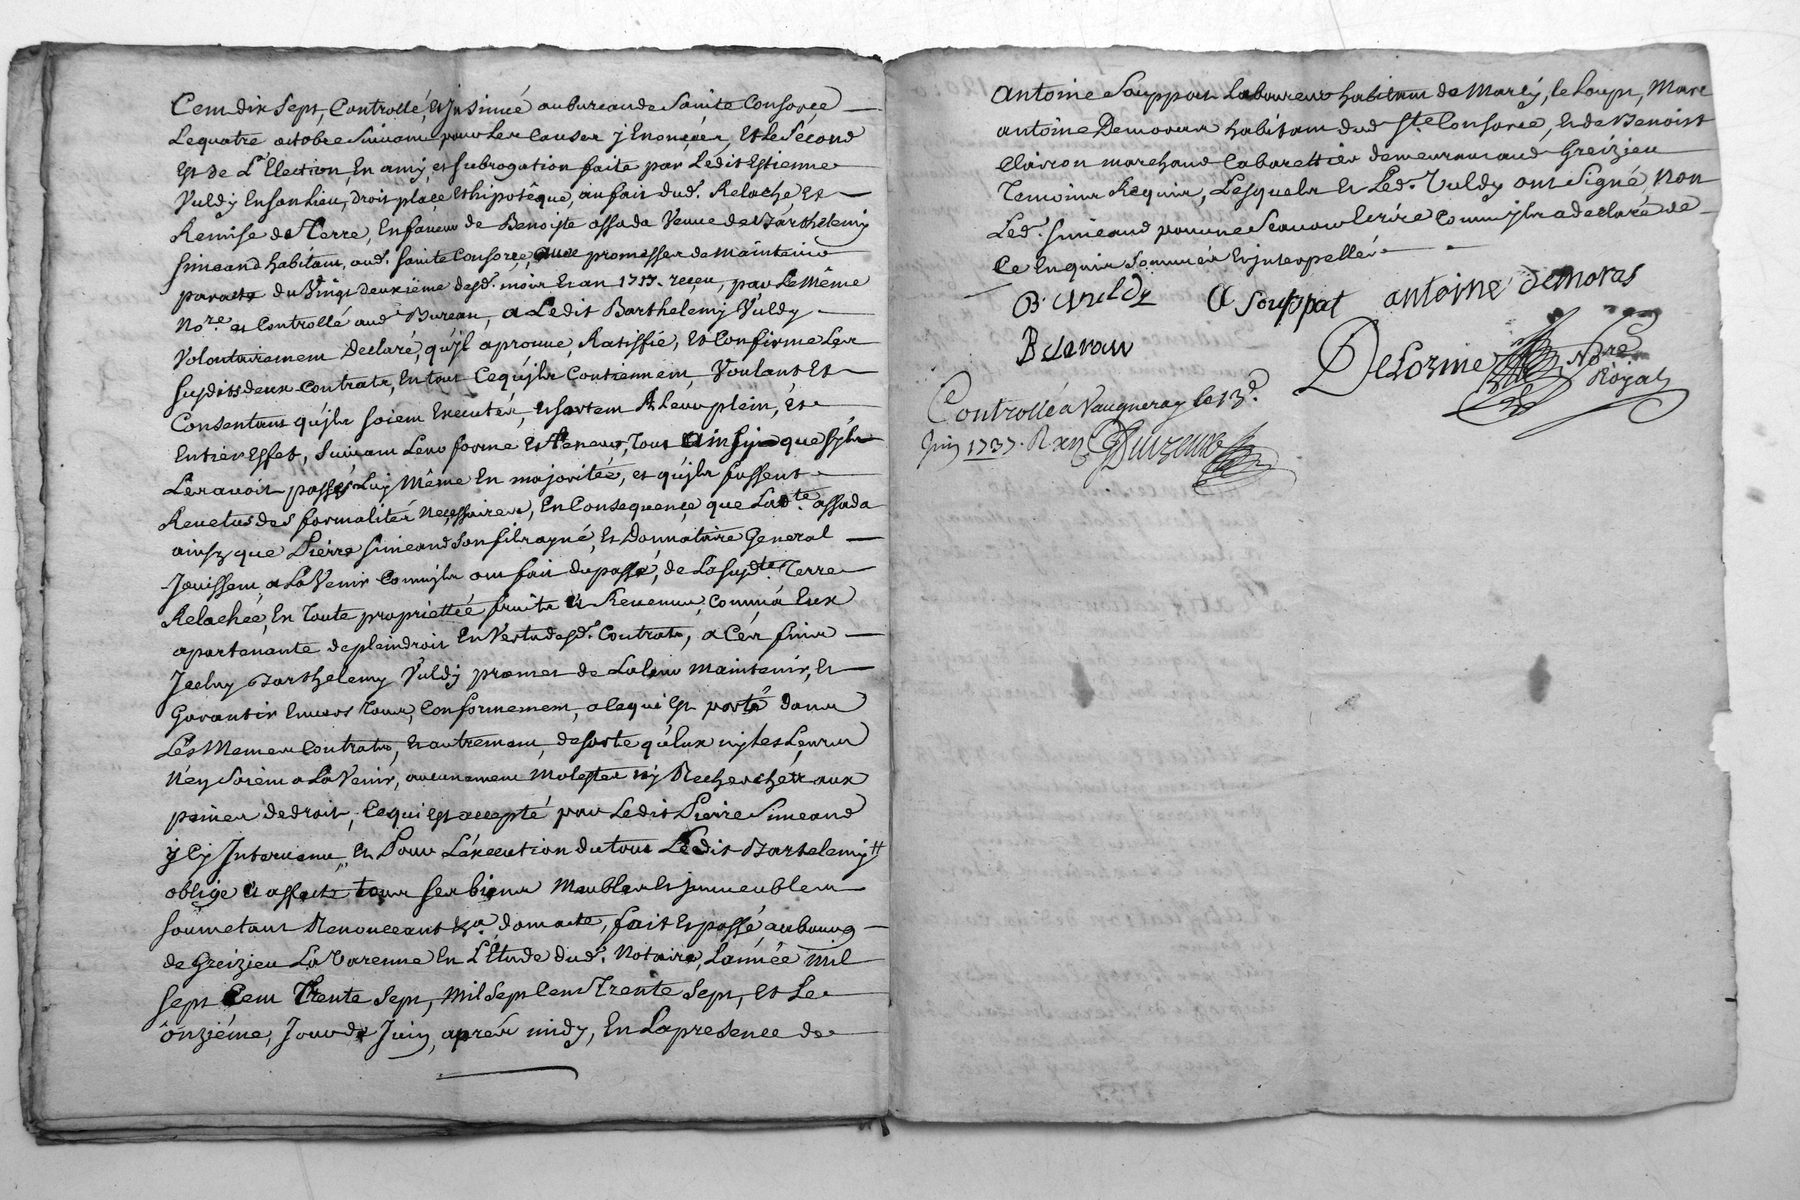 Cent dix sept, Controllé, et Insinué au bureau de Sainte Consorce
Le quatre octobre Suivant pour Les Causes y Enoncées, Et Le Second
Est de L'Election En amy, et subrogation faite par Ledit Estienne
Vuldy En son Lieu, droit place et hipotêque, au fait dud. Relache, Et
Remise de Terre, En faveur de Benoiste assada Veuve de Barthelemy
Simeand habitant, aud. Sainte Consorce, avec promesse de maintenir
par acte du Vingt deuxième desd. mois et an 1717. receu, par Le Même
Nore. et Controllé aud. Bureau, a Ledit Barthelemy Vuldy
Volontairement Declaré, qu'jl aprouve, Ratiffié, et Confirme Les
susdits deux Contrats, En tout Ce qu'jls Contiennent, Voulant Et
Consentant qu'jls soient Executés, et sortent A Leur plein, Et
Entier Effet, Suivant Leur forme Et teneur, Tout ainsy que s'jls
Les avoit passés Luy Même En majorités, et qu'jls fussent
Revetus des formalités Necessaires, En Consequence que Ladte. assada
ainsy que Pierre Simeand son fils ayné, et Donnataire General
Jouissent a La Venir Comm'jls ont fait du passé, de La susdte. Terre
Relachée, En Toute proprietteé fruits Et Revenus, comm'à Eux
apartenante de plein droit En Vertu desd. Contrats, a Ces fins
Jceluy Barthelemy Vuldy promet de La Leur Maintenir, Et
Garantir Envers Tous, Conformement, a Ce qui Est porté dans
Les Memes Contrats, et autrement, de sorte qu'Eux ny les Leurs
N'en Soient a La Venir, aucunement Molestés ny Recherchetz aux
peines de droit, Ce qui Est accepté par Ledit Pierre Simeand
y Cy Intervenu, Et Pour L'execution du tout Ledit Bartelemy
oblige Et affecte tous ses biens Meubles et jmmeubles
soumetant Renonceant &a. dont acte, fait Et passé au bourg
de Greizieu La Varenne En L'Etude dud. Notaire, L'année mil
sept Cent Trente Sept, Mil Sept Cent Trente Sept, Et Le
onziéme, Jour de Juin, aprés midy, En La presence de
Antoine Souppat Laboureur habitant de Marcy, le Loup, Mare
antoine Demoras habitant dud. Ste. Consorce, Et de Benoist
Clairon marchand Cabarettier demeurant aud. Greizieu
Temoins Requis, Lesquels et Led. Vuldy ont Signé, Non
Led. Simeand pour ne Scavoir Ecrire Comm'jl a declaré de
Ce Enquis Sommés Et jnterpellés
B. Vuldy A Souppat antoine demoras
B
DeLorme Nore. Royal
Controllé à Vaugneray le 13e.
Juin 1737.